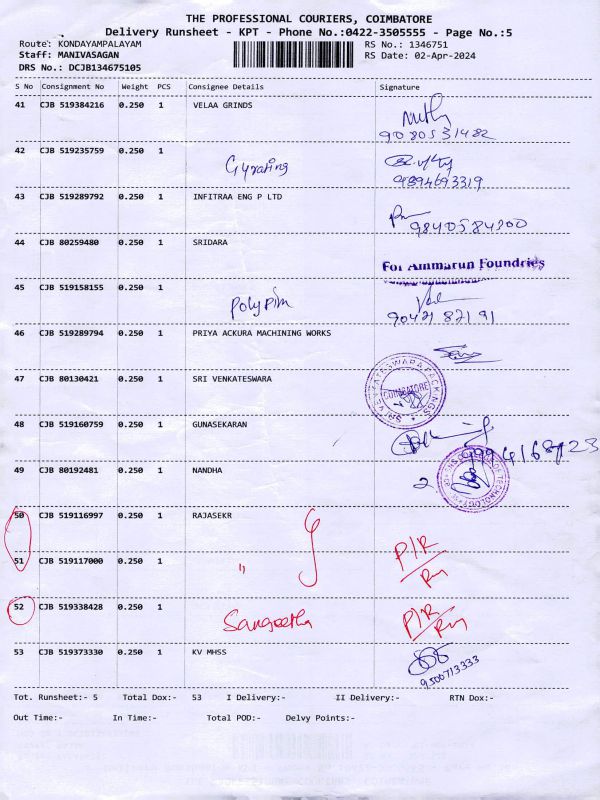 THE PROFESSIONAL COURIERS, COIMBATORE
Delivery Runsheet - KPT - Phone No.:0422-3505555 - Page No.:5
Route: KONDAYAMPALAYAM RS No.: 1346751
Staff: MANIVASAGAN RS Date: 02-Apr-2024
DRS No.: DCJB134675105
S No Consignment No Weight PCS Consignee Details Signature
41 CJB 519384216 0.250 1 VELAA GRINDS
9080531482
42 CJB 519235759 0.250 1
Gyrating
9894693319
43 CJB 519289792 0.250 1 INFITRAA ENG P LTD
9840584200
44 CJB 80259480 0.250 1 SRIDARA
For Ammarun Foundries
45 CJB 519158155 0.250 1
Polypim
9042187191
46 CJB 519289794 0.250 1 PRIYA ACKURA MACHINING WORKS
47 CJB 80130421 0.250 1 SRI VENKATESWARA
COIMBATORE
48 CJB 519160759 0.250 1 GUNASEKARAN
49 CJB 80192481 0.250 1 NANDHA
2
50 CJB 519116997 0.250 1 RAJASEKR
51 CJB 519117000 0.250 1 " P/R
52 CJB 519338428 0.250 1 Sangeetha P/R
53 CJB 519373330 0.250 1 KV MHSS
9500713333
Tot. Runsheet:- 5 Total Dox:- 53 I Delivery:- II Delivery:- RTN Dox:-
Out Time:- In Time:- Total POD:- Delvy Points:-